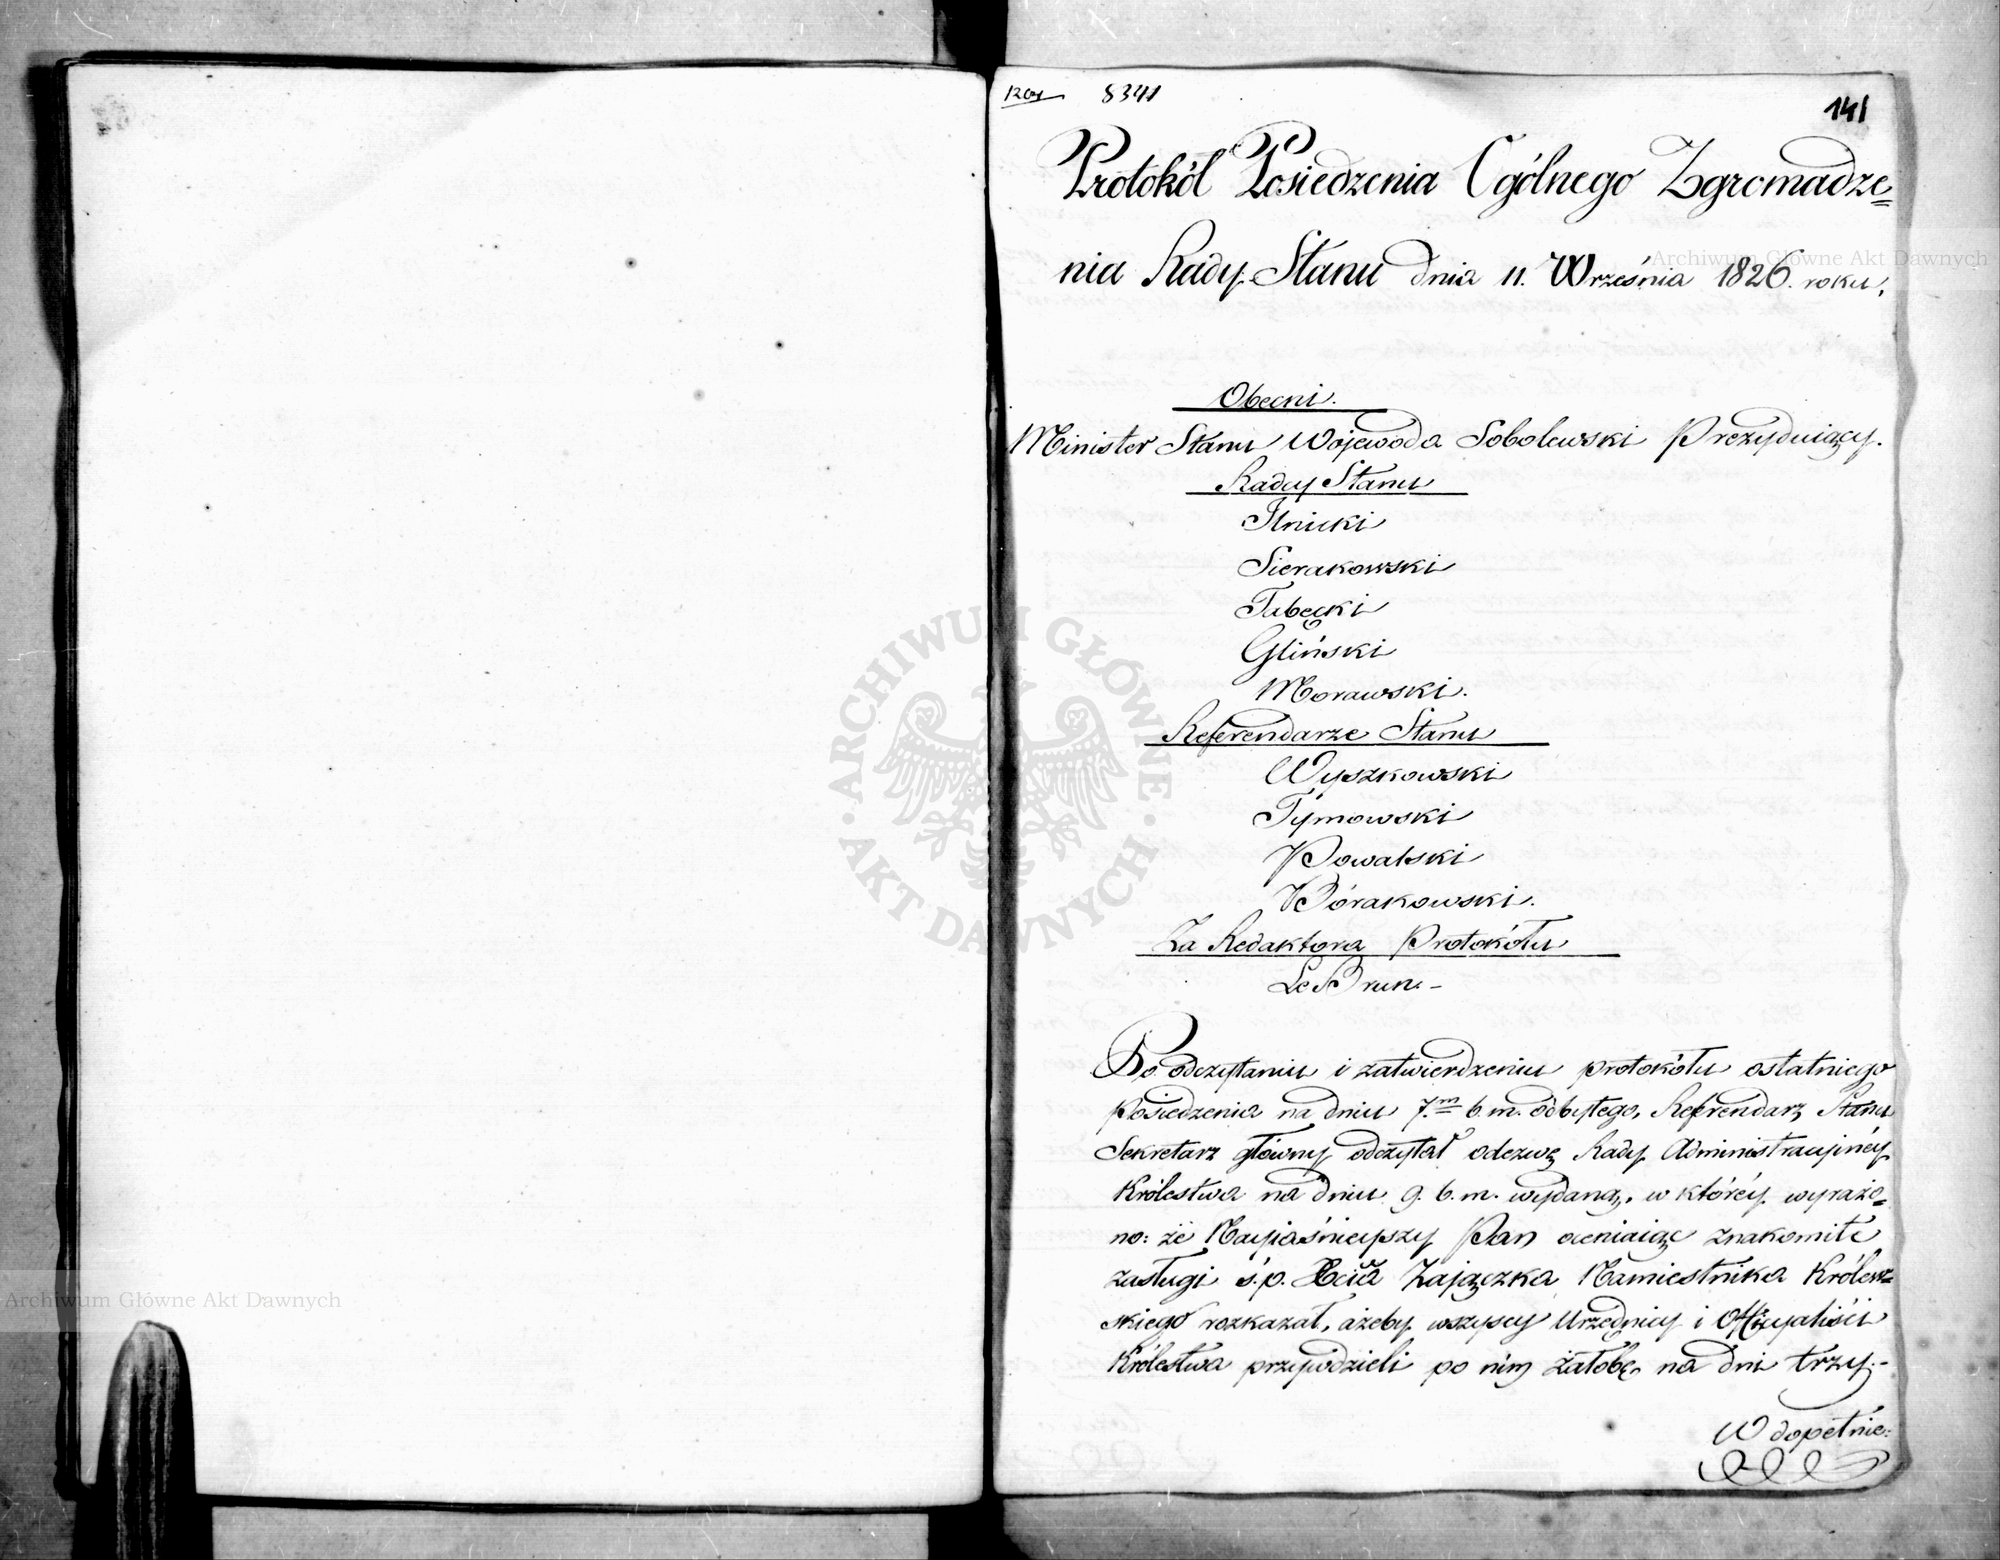 8341
141
Protokół Posiedzenia Ogólnego Zgromadze=
nia Rady Stanu dnia 11. Września 1826. roku.
Obecni.
Minister Stanu Wojewoda Sobolewski Prezyduiący.
Radcy Stanu
Ilnicki
Sierakowski
Tubęcki
Gliński
Morawski.
Referendarze Stanu
Wyszkowski
Tymowski
Powalski
Bórakowski.
Za Redaktora Protokółu
Le Brun. -
Po odczytaniu i zatwierdzeniu protokółu ostatniego
Posiedzenia na dniu 7.m b. m. odbytego, Referendarz Stanu
Sekretarz główny odczytał odezwę Rady Administracyjnéy
Królestwa na dniu 9. b. m. wydaną, w któréy wyrażo=
no: że Nayiaśnieyszy Pan oceniaiąc znakomite
zasługi ś. p. Xcia Zajączka Namiestnika Królew=
skiego rozkazał, ażeby wszyscy Urzędnicy i Officyaliści
Królestwa przywdzieli po nim żałobę na dni trzy. -
W dopełnie:
ARCHIWUM GŁÓWNE AKT DAWNYCH
Archiwum Główne Akt Dawnych
Archiwum Główne Akt Dawnych